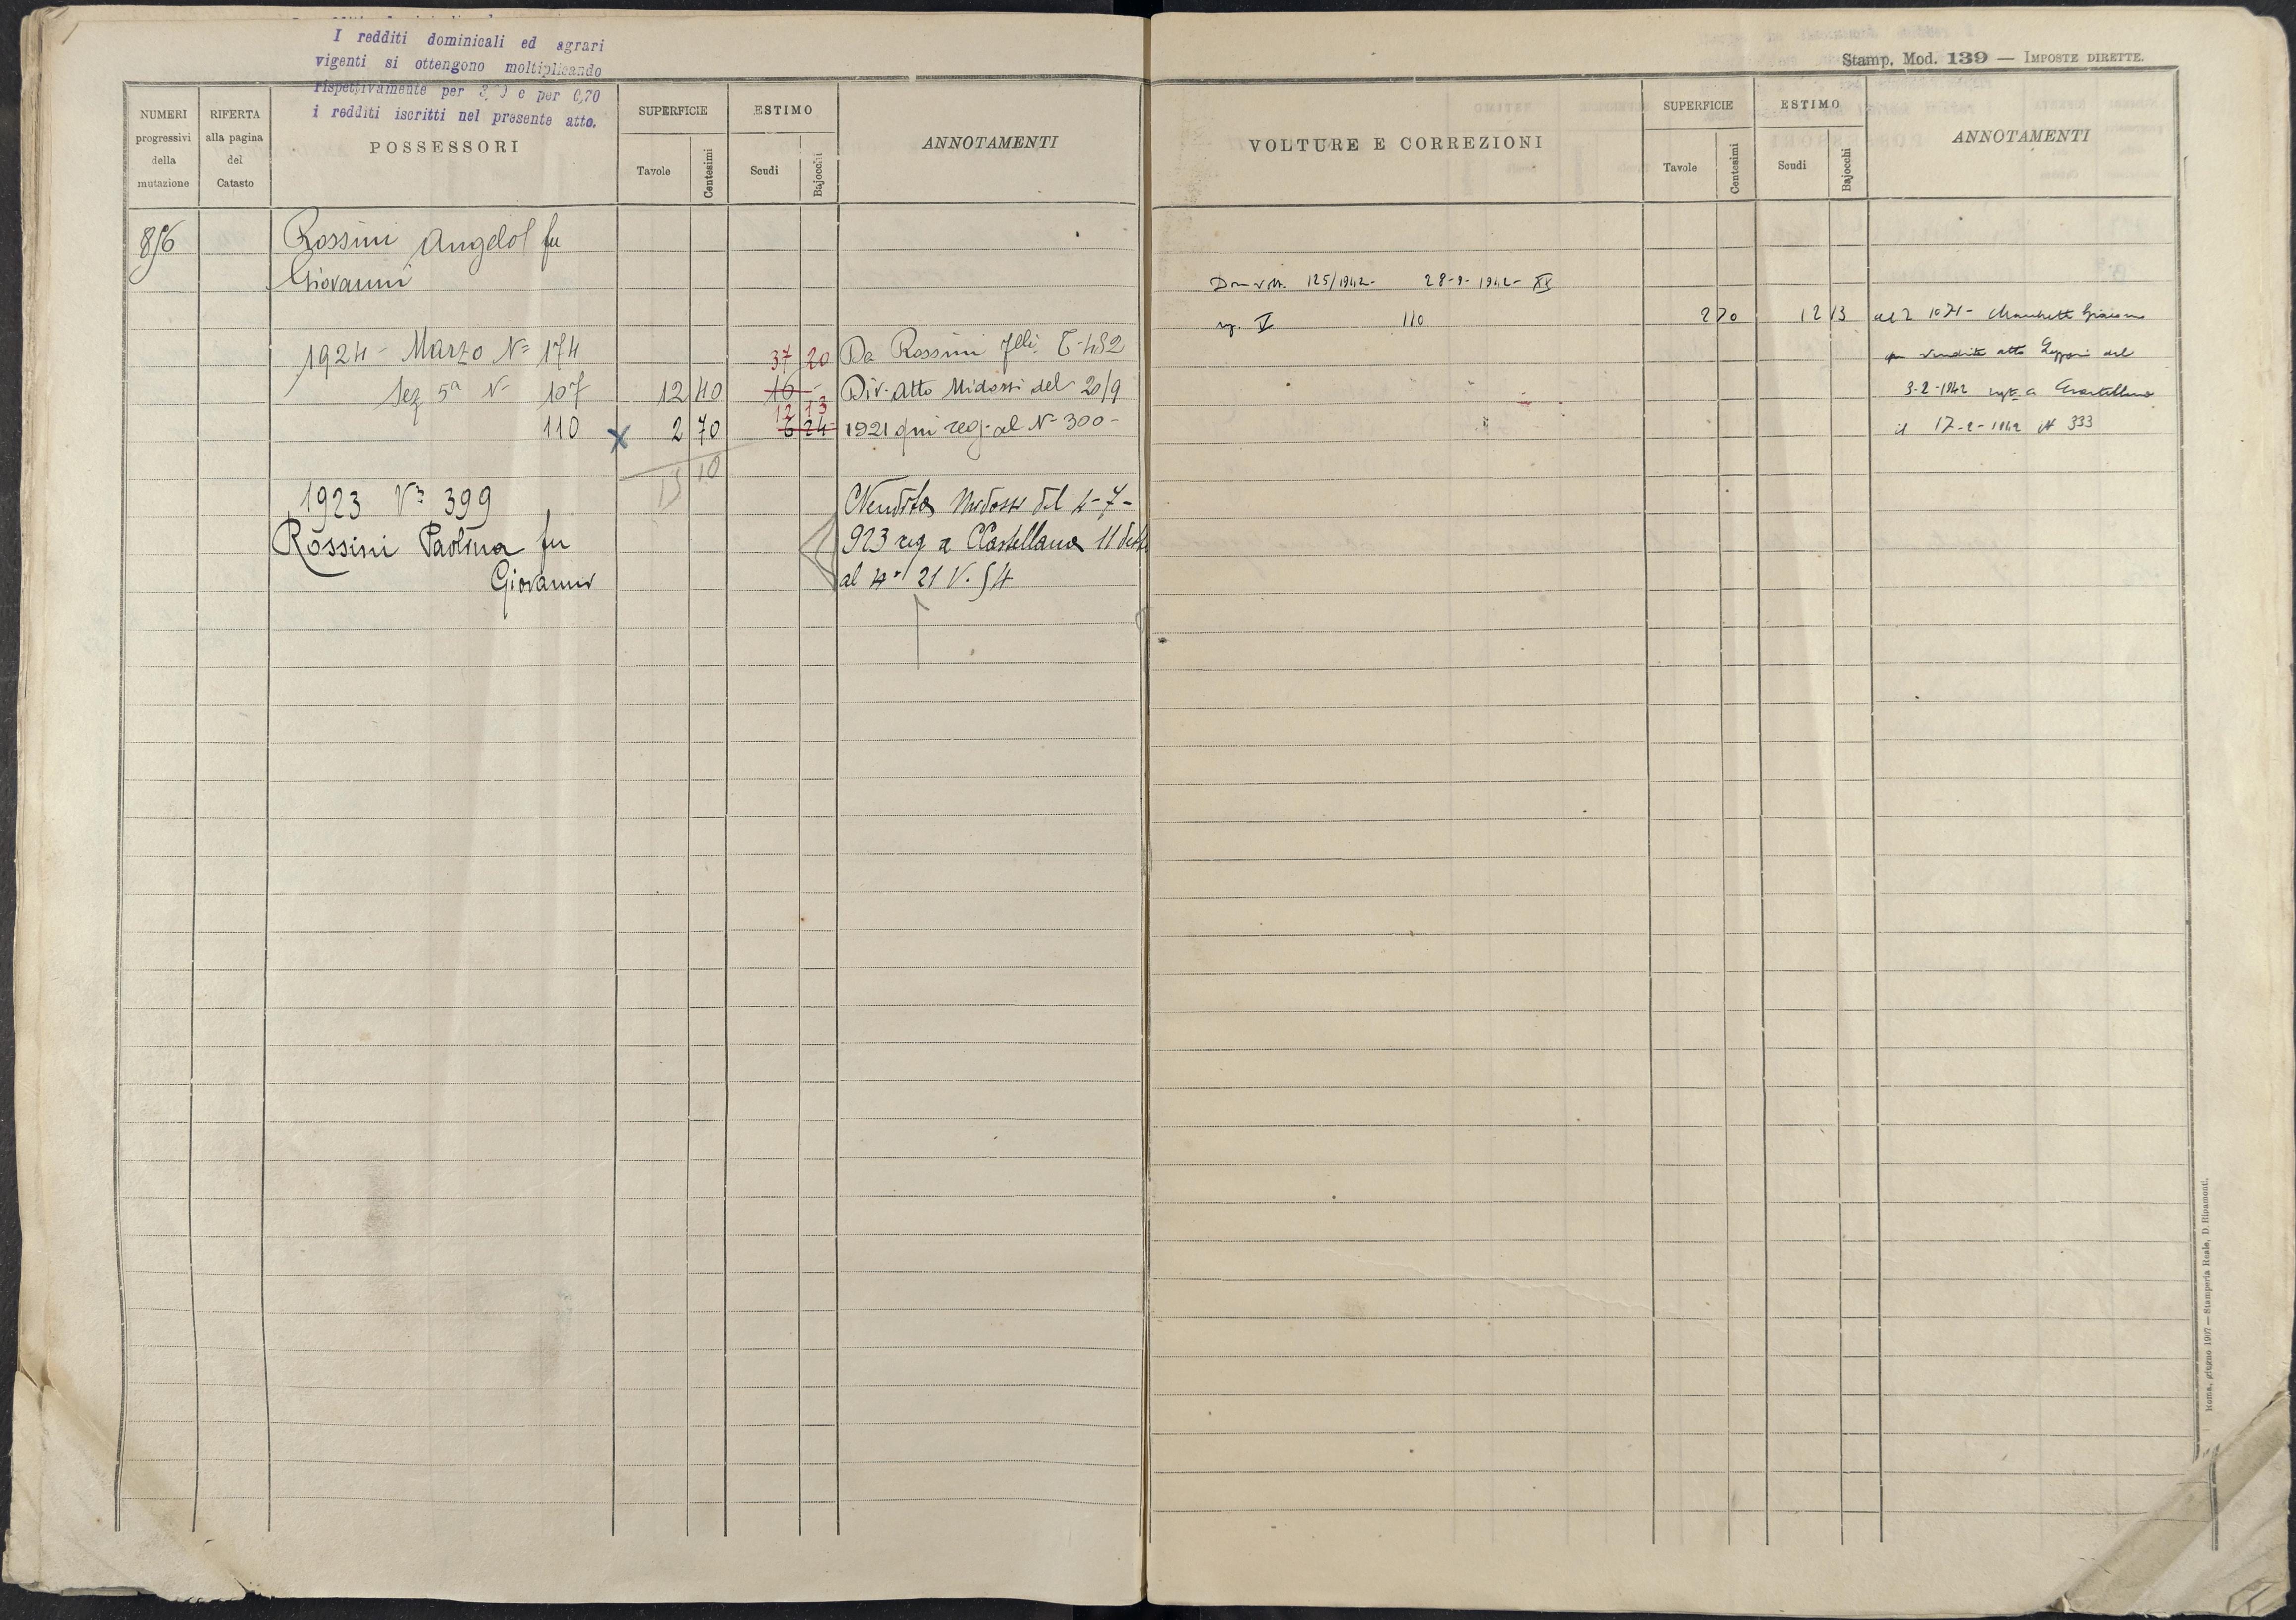 I redditi dominicali ed agrari
vigenti si ottengono moltiplicando
rispettivamente per e per 0,70
i redditi iscritti nel presente atto.
NUMERI
progressivi
della
mutazione
RIFERTA
alla pagina
del
Catasto
POSSESSORI
SUPERFICIE
Tavole
Centesimi
ESTIMO
Scudi
Bajocchi
ANNOTAMENTI
856
Rossini Angelo fu
Giovanni
1924 - Marzo N= 174
37 20
Da Rossini flli
Sez 5a N- 107
12 40
16 -
Div. Atto Midossi del 20/9
12 13
110
x
2 70
6 24
1921 qui reg. al N- 300 -
15 10
1923 N= 399
Vendita Midossi del 4-7-
Rossini Paolina fu
923 reg a Castellana 11 detto
Giovanni
al N° 21 V. 54
Stamp. Mod. 139 — IMPOSTE DIRETTE.
VOLTURE E CORREZIONI
SUPERFICIE
Tavole
Centesimi
ESTIMO
Scudi
Bajocchi
ANNOTAMENTI
125/1942- 28-9-1942- XX
V 110
2 70
12 13
1071 - Giacomo
vendita atto del
3-2-1942 a Castellana
il 17-2-1942 N 333
Roma, giugno 1907 — Stamperia Reale, D. Ripamonti.